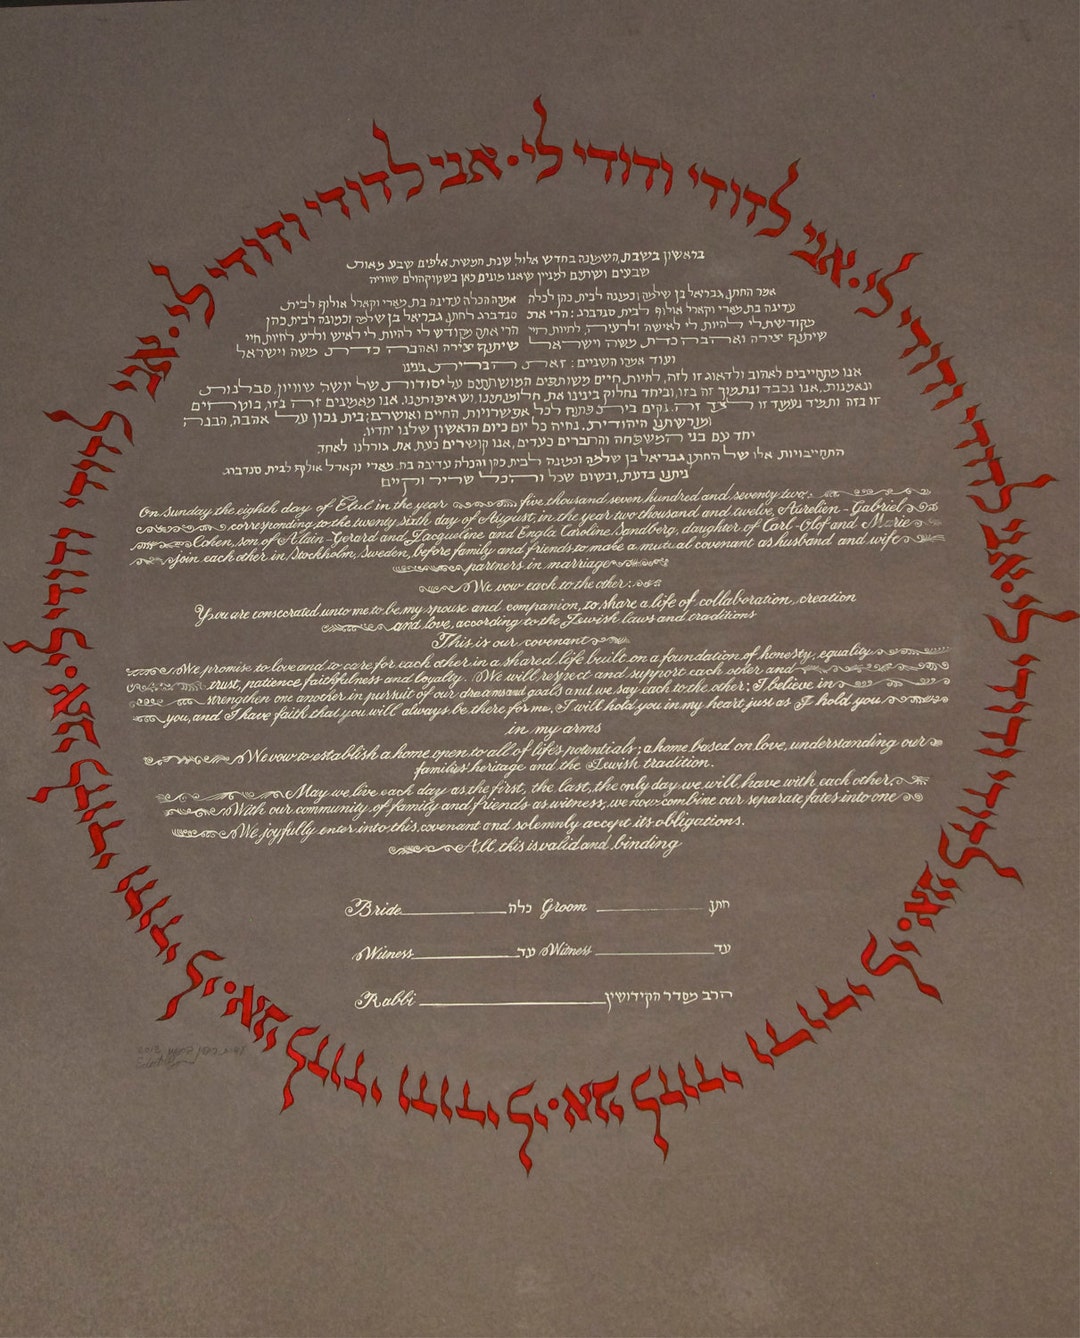 אני לדודי ודודי לי • אני לדודי ודודי לי • אני לדודי ודודי לי • אני לדודי ודודי לי • אני לדודי ודודי לי • אני לדודי ודודי לי • אני לדודי ודודי לי • אני לדודי ודודי לי •
בראשון בשבת, השמונה בחדש אלול שנת חמשת אלפים שבע מאות
שבעים ושתים למנין שאנו מונים כאן בשטוקהולם שוודיה
אמר החתן, גבריאל בן שלמה וכמונה לבית כהן לכלה
עדינה בת מארי וקארל אולוף לבית סנדברג: הרי את
מקודשת לי להיות לי לאישה ולרעיה, לחיות חיי
שיתוף יצירה ואהבה כדת משה וישראל
אמרה הכלה עדינה בת מארי וקארל אולוף לבית
סנדברג לחתן, גבריאל בן שלמה וכמונה לבית כהן
הרי אתה מקודש לי להיות לי לאיש ולרע, לחיות חיי
שיתוף יצירה ואהבה כדת משה וישראל
ועוד אמרו השניים: זאת הברית בנינו
אנו מתחייבים לאהוב ולדאוג זו לזה, לחיות חיים משותפים המושתתים על יסודות של יושר שוויון, סבלנות
ונאמנות. אנו נכבד ונתמוך זה בזו, וביחד נחלוק בינינו את חלומותינו, ושאיפותינו, אנו מאמינים זה בזו, בוטחים
זו בזה ותמיד נעמוד זו לצד זה. נקים בית פתוח לכל אפשרויות החיים ואושרם; בית נכון על אהבה, הבנה
ומורשתנו היהודית. נחיה כל יום כיום הראשון שלנו יחדיו.
יחד עם בני המשפחה והחברים כעדים, אנו קושרים כעת את גורלנו לאחד.
התחייבויות אלו של החתן גבריאל בן שלמה וכמונה לבית כהן והכלה עדינה בת מארי וקארל אולוף לבית סנדברג.
ניתנו בדעת, ובשום שכל והכל שריר וקיים
On Sunday the eighth day of Elul in the year five thousand seven hundred and seventy two,
corresponding to the twenty sixth day of August, in the year two thousand and twelve, Aurelien-Gabriel
Cohen, son of Alain-Gerard and Jacqueline and Engla Caroline Sandberg, daughter of Carl-Olof and Marie
join each other in Stockholm, Sweden, before family and friends to make a mutual covenant as husband and wife
partners in marriage
We vow each to the other:
You are consecrated unto me to be my spouse and companion, to share a life of collaboration, creation
and love, according to the Jewish laws and traditions
This is our covenant
We promise to love and to care for each other in a shared life built on a foundation of honesty, equality
trust, patience faithfulness and loyalty. We will respect and support each other and
strengthen one another in pursuit of our dreams and goals and we say each to the other; I believe in
you, and I have faith that you will always be there for me, I will hold you in my heart just as I hold you
in my arms
We vow to establish a home open to all of life's potentials; a home based on love, understanding our
families' heritage and the Jewish tradition.
May we live each day as the first, the last, the only day we will have with each other.
With our community of family and friends as witness, we now combine our separate fates into one
We joyfully enter into this covenant and solemnly accept its obligations.
All this is valid and binding
Bride כלה Groom חתן
Witness עד Witness עד
Rabbi הרב מסדר הקידושין